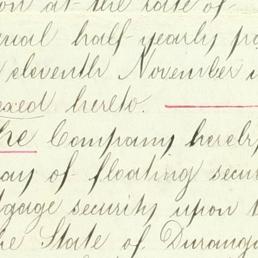 ion at the rate of
qual half-yearly pa
eleventh November i
exed hereto.
The Company hereby
way of floating secur
tgage security upon t
he State of Durang